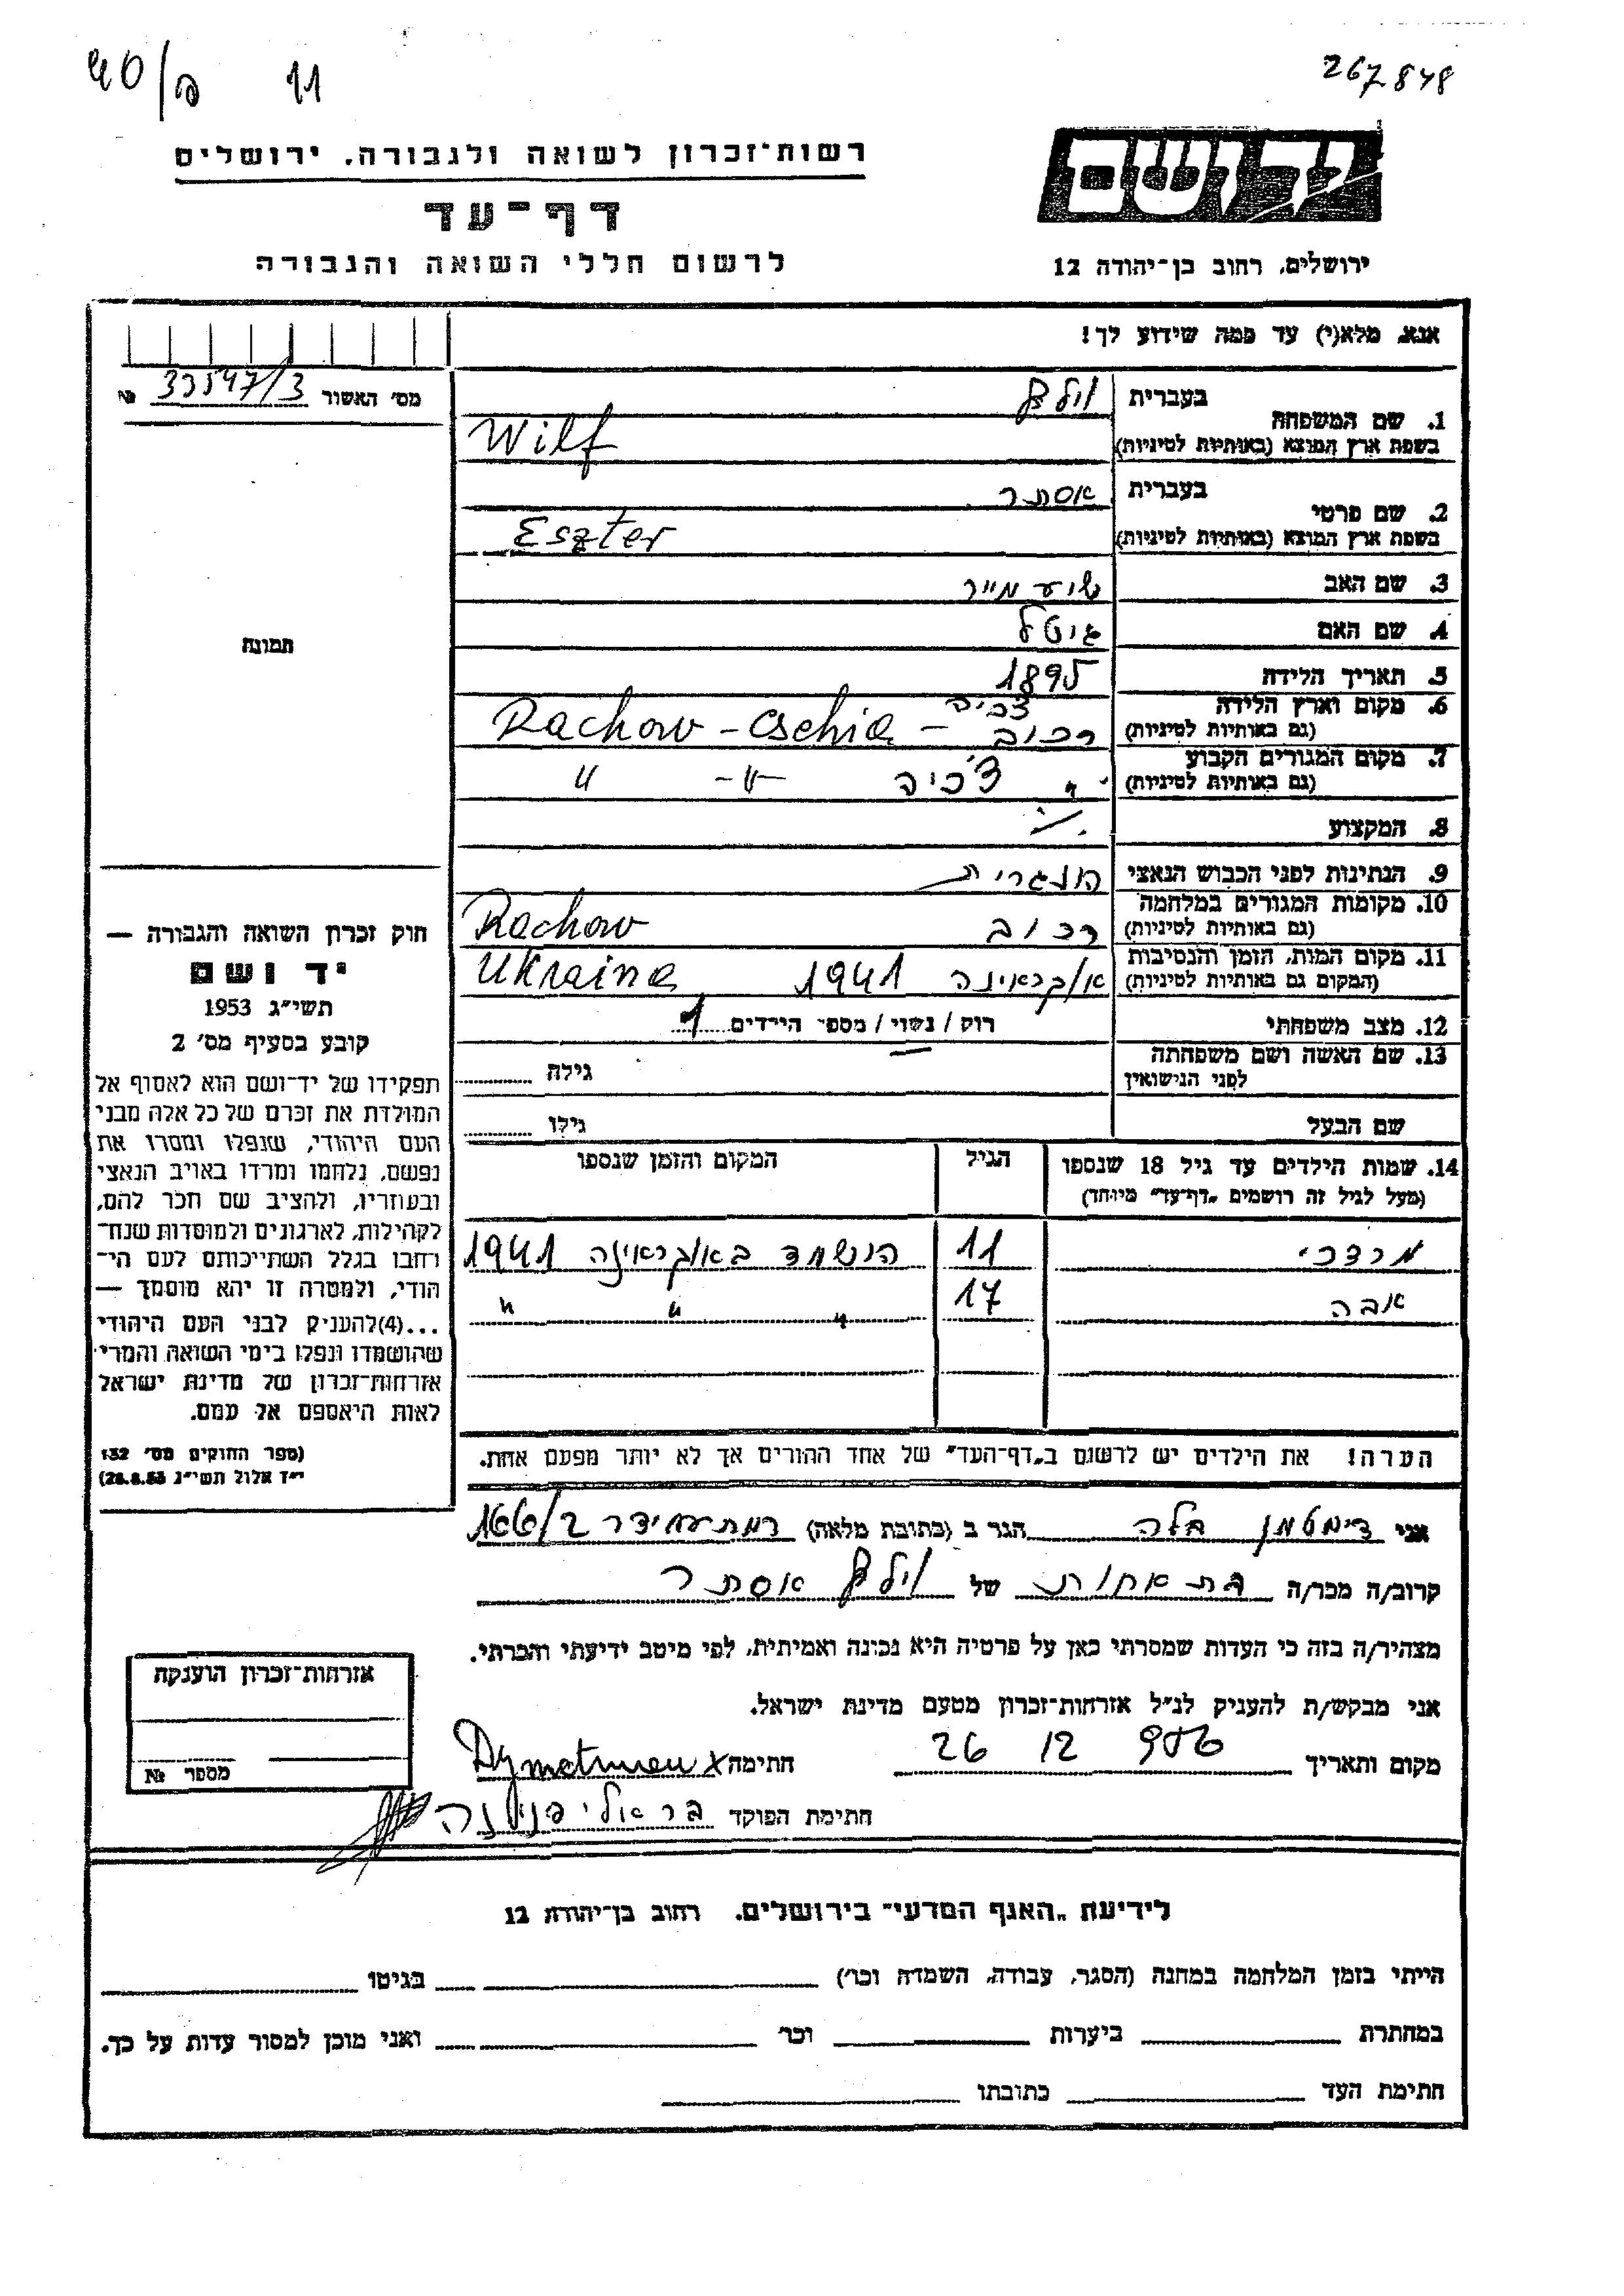 40/פ 11
267848
רשות-זכרון לשואה ולגבורה. ירושלים
דף-עד
לרשום חללי השואה והגבורה
יד ושם
ירושלים, רחוב בן-יהודה 12
אנא, מלא(י) עד כמה שידוע לך!
מס׳ האשור 33547/3 №
תמונה
1. שם המשפחה
בעברית וילף
בשפת ארץ המוצא (באותיות לטיניות) Wilf
2. שם פרטי
בעברית אסתר
בשפת ארץ המוצא (באותיות לטיניות) Eszter
3. שם האב שיע מייר
4. שם האם גיטל
5. תאריך הלידה 1895
6. מקום וארץ הלידה
(גם באותיות לטיניות) רכוב צ׳כיה – Rachow - Cschia
7. מקום המגורים הקבוע
(גם באותיות לטיניות) " צ׳כיה -"- "
8. המקצוע ./.
9. הנתינות לפני הכבוש הנאצי הונגרית
10. מקומות המגורים במלחמה
(גם באותיות לטיניות) רכוב Rachow
11. מקום המות, הזמן והנסיבות
(המקום גם באותיות לטיניות) אוקראינה 1941 Ukraina
12. מצב משפחתי רוק / נשוי / מספר הילדים 1
13. שם האשה ושם משפחתה
לפני הנישואין גילה
שם הבעל גילו
14. שמות הילדים עד גיל 18 שנספו
(מעל לגיל זה רושמים „דף-עד" מיוחד)
הגיל
המקום והזמן שנספו
מרדכי 11 הושמד באוקראינה 1941
אבה 17 " " "
הערה! את הילדים יש לרשום ב„דף-העד" של אחד ההורים אך לא יותר מפעם אחת.
חוק זכרון השואה והגבורה —
יד ושם
תשי״ג 1953
קובע בסעיף מס׳ 2
תפקידו של יד-ושם הוא לאסוף אל
המולדת את זכרם של כל אלה מבני
העם היהודי, שנפלו ומסרו את
נפשם, נלחמו ומרדו באויב הנאצי
ובעוזריו, ולהציב שם וזכר להם,
לקהילות, לארגונים ולמוסדות שנח-
רבו בגלל השתייכותם לעם הי-
הודי, ולמטרה זו יהא מוסמך —
...(4) להעניק לבני העם היהודי
שהושמדו ונפלו בימי השואה והמרי
אזרחות-זכרון של מדינת ישראל
לאות היאספם אל עמם.
(ספר החוקים מס׳ 132
י״ד אלול תשי״ג 26.8.53)
אני דימטמן בלה הגר ב (כתובת מלאה) רמת עמידר 166/2
קרוב/ה מכר/ה בת אחות של וילף אסתר
מצהיר/ה בזה כי העדות שמסרתי כאן על פרטיה היא נכונה ואמיתית, לפי מיטב ידיעתי והכרתי.
אני מבקש/ת להעניק לנ״ל אזרחות-זכרון מטעם מדינת ישראל.
מקום ותאריך 26 12 956 חתימה x Dymetman
חתימת הפוקד בר אלי פנינה
אזרחות-זכרון הוענקה
מספר №
לידיעת „האגף המדעי" בירושלים. רחוב בן-יהודה 12
הייתי בזמן המלחמה במחנה (הסגר, עבודה, השמדה וכר׳) בגיטו
במחתרת ביערות וכר׳ ואני מוכן למסור עדות על כך.
חתימת העד כתובתו